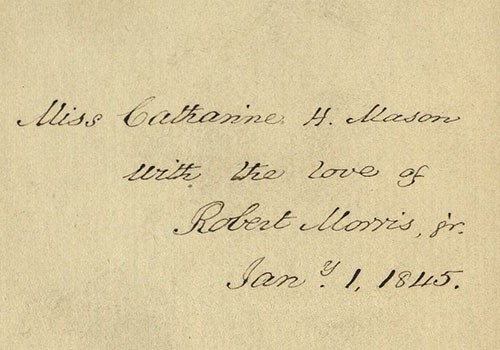 Miss Catharine H. Mason
With the love of
Robert Morris, jr.
Jan.y 1, 1845.